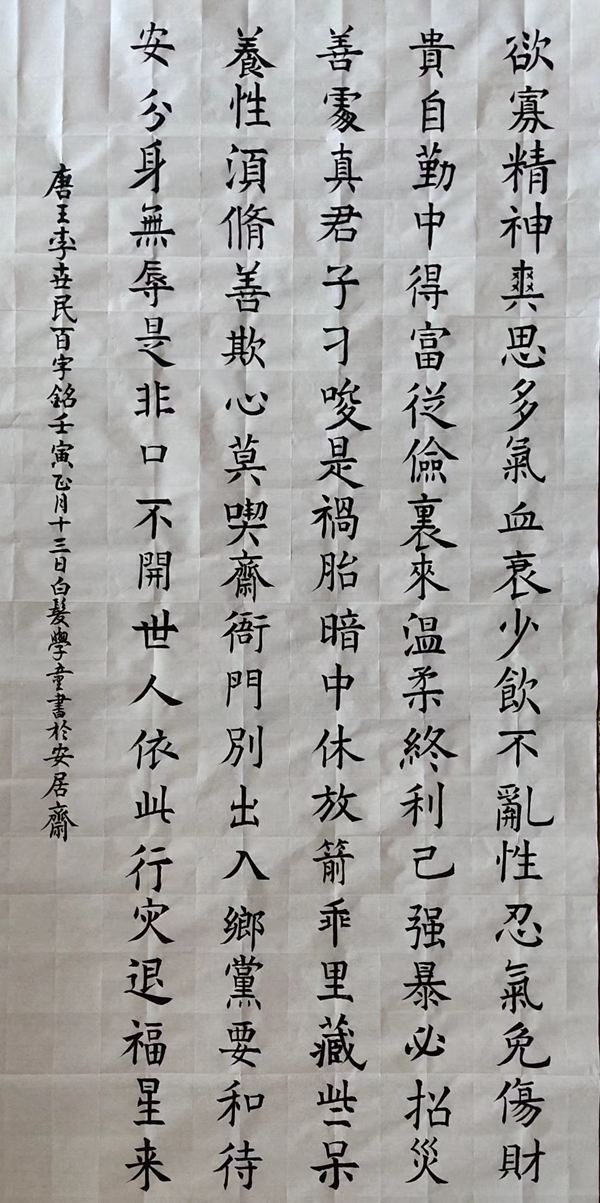 欲寡精神爽思多氣血衰少飲不亂性忍氣免傷財
貴自勤中得富從儉裏來温柔終利己强暴必招災
善處真君子刁唆是禍胎暗中休放箭乖里藏些呆
養性須脩善欺心莫喫齋衙門別出入鄉黨要和待
安分身無辱是非口不開世人依此行灾退福星来
唐王李世民百字銘壬寅正月十三日白髮學童書於安居齋